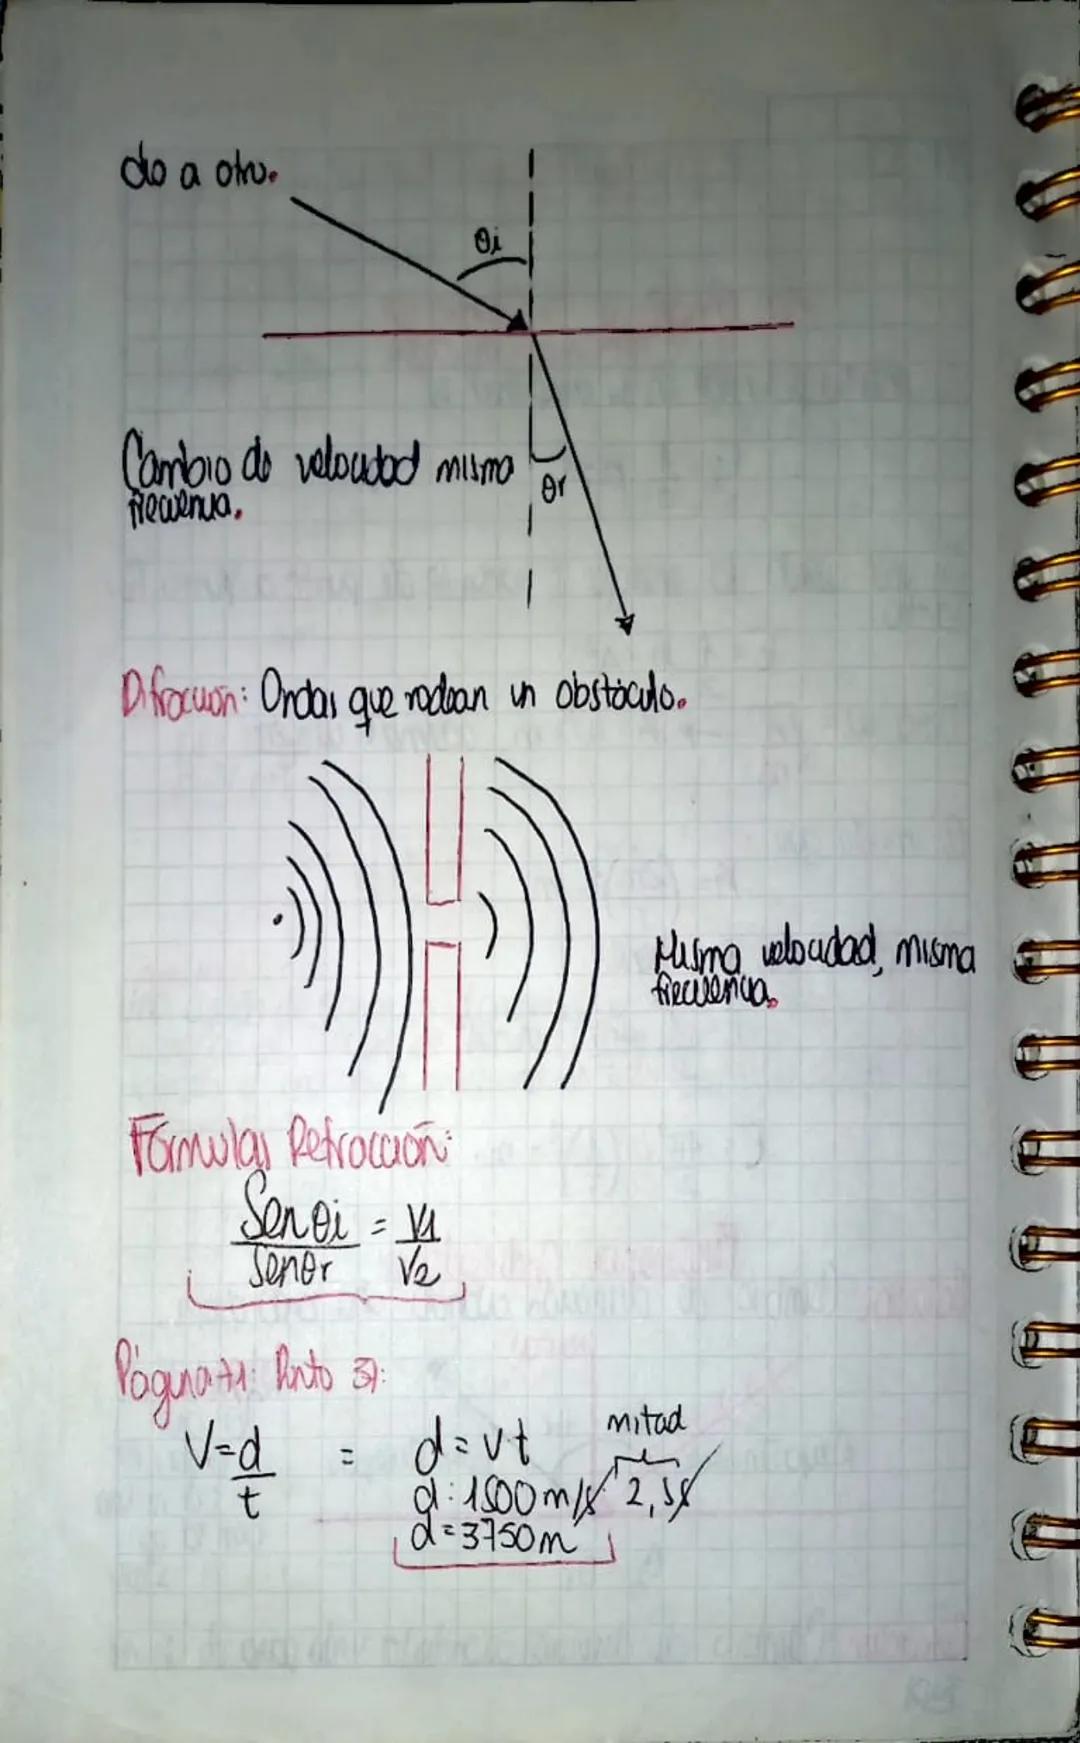 do a otro.
θi
Cambio de velocidad misma
frecuencia.
θr
Difracción: Ondas que rodean un obstáculo.
Misma velocidad, misma
frecuencia.
Fórmulas Refracción:
Senθi = V1
Senθr V2
Página 71: Punto 3):
V=d = d=vt mitad
t d: 1500m/s 2,5s
d=3750m